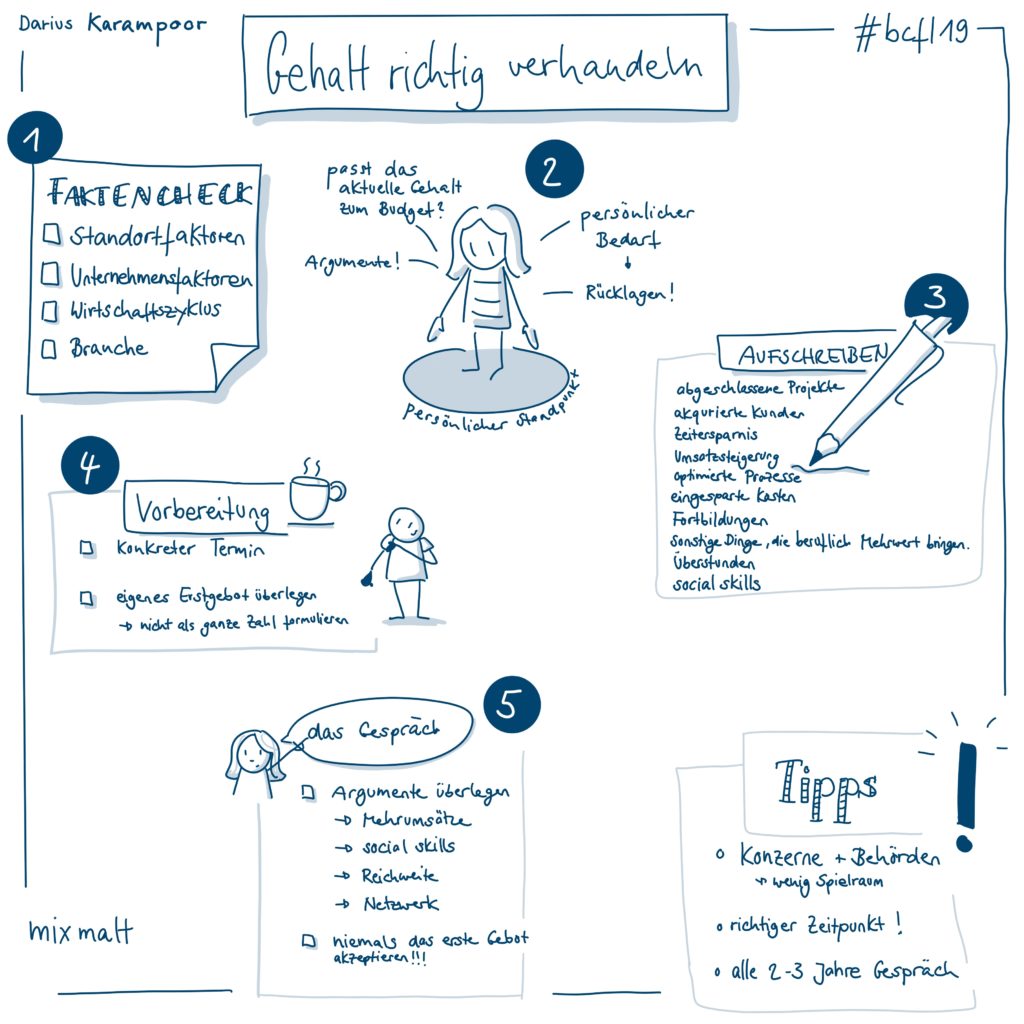 Darius Karampoor
Gehalt richtig verhandeln
#bcfl19
1
FAKTENCHECK
Standortfaktoren
Unternehmensfaktoren
Wirtschaftszyklus
Branche
2
passt das
aktuelle Gehalt
zum Budget?
Argumente!
persönlicher
Bedarf
Rücklagen!
persönlicher Standpunkt
3
AUFSCHREIBEN
abgeschlossene Projekte
akqurierte Kunden
Zeitersparnis
Umsatzsteigerung
optimierte Prozesse
eingesparte Kosten
Fortbildungen
sonstige Dinge, die beruflich Mehrwert bringen.
Überstunden
social skills
4
Vorbereitung
Konkreter Termin
eigenes Erstgebot überlegen
→ nicht als ganze Zahl formulieren
5
das Gespräch
Argumente überlegen
→ Mehrumsätze
→ social skills
→ Reichweite
→ Netzwerk
niemals das erste Gebot
akzeptieren!!!
Tipps
Konzerne + Behörden
→ wenig Spielraum
richtiger Zeitpunkt!
alle 2-3 Jahre Gespräch
mixmalt